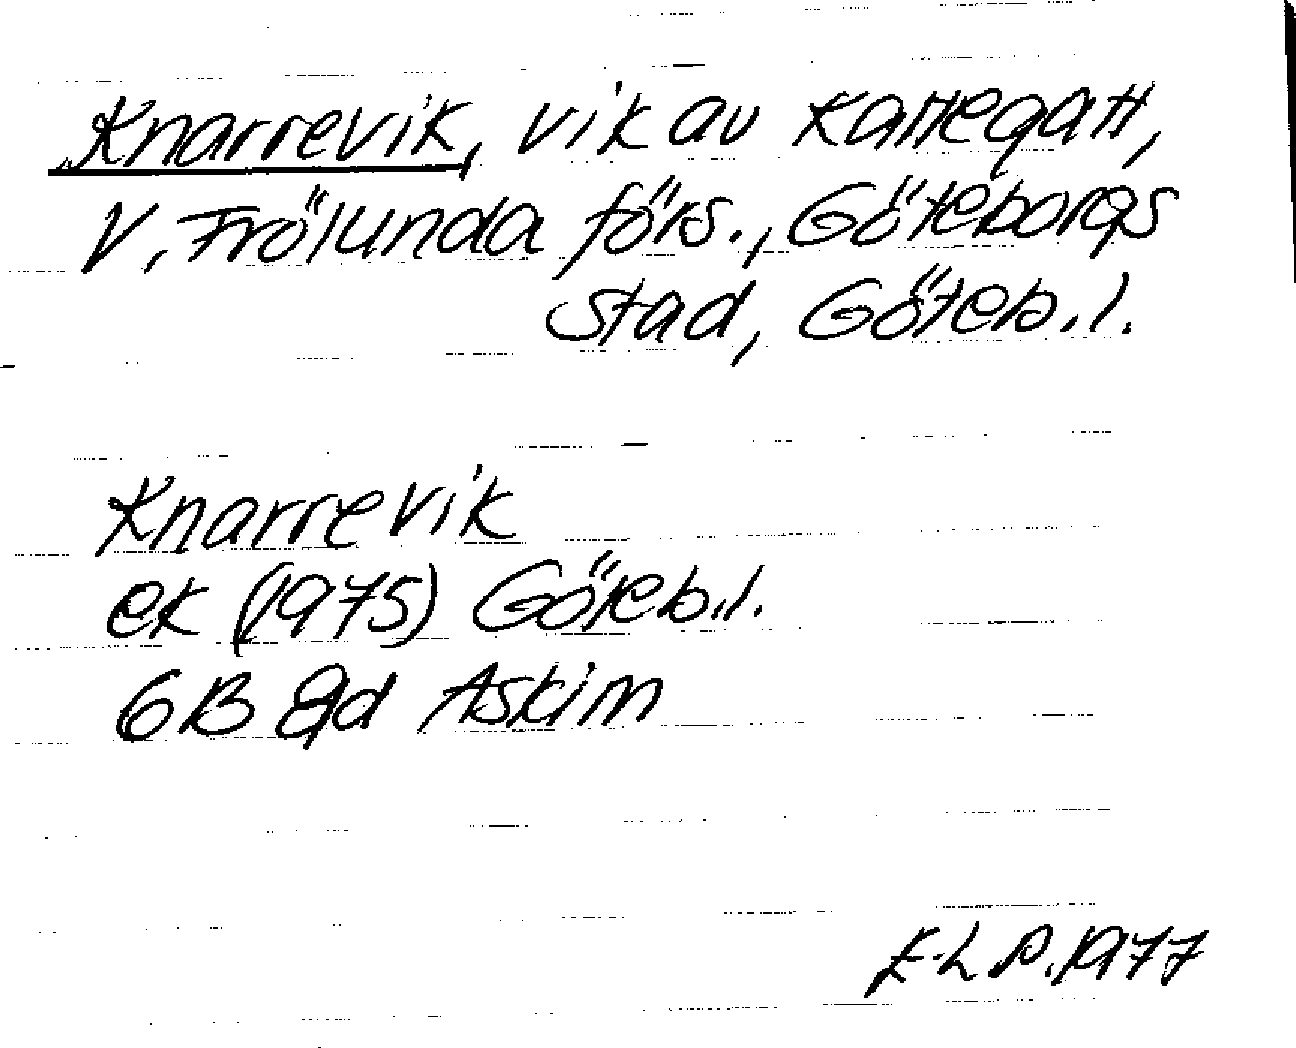 Knarrevik, vik av Kattegatt,
V. Frölunda förs., Göteborgs
stad, Göteb.l.
Knarrevik
ek (1975) Göteb.l.
6B 8d Askim
E-L P. 1977